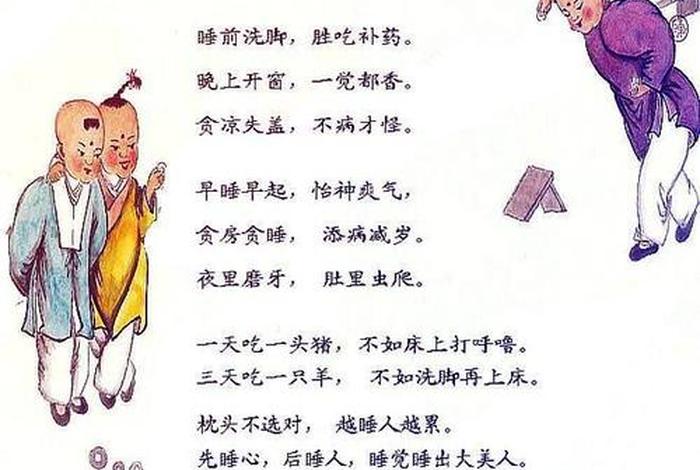 睡前洗脚，胜吃补药。
晚上开窗，一觉都香。
贪凉失盖，不病才怪。
早睡早起，怡神爽气，
贪房贪睡， 添病减岁。
夜里磨牙， 肚里虫爬。
一天吃一头猪，不如床上打呼噜。
三天吃一只羊， 不如洗脚再上床。
枕头不选对， 越睡人越累。
先睡心，后睡人，睡觉睡出大美人。